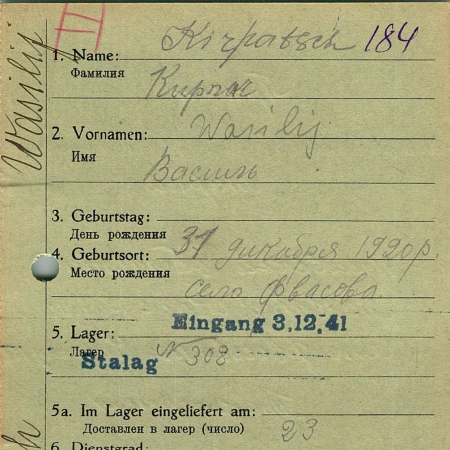 VI
Kirpatsch 184
1. Name:
Фамилия
Кирпач
Wasilij
2. Vornamen: Wasilij
Имя
Василь
3. Geburtstag:
День рождения
31 декабря 1920 р.
4. Geburtsort:
Место рождения
село
Eingang 3.12.41
5. Lager:
Лагерь
Stalag N 308
5a. Im Lager eingeliefert am:
Доставлен в лагерь (число) 23
6. Dienstgrad: